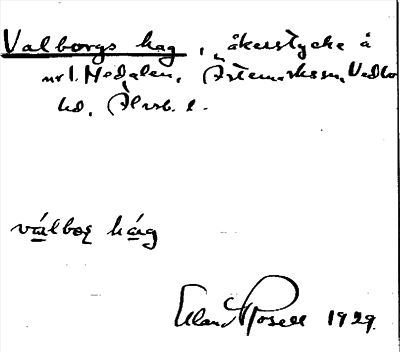 Valborgs hag, åkerstycke å
nr 1. Hedalen, Ärtemarks sn, Vedbo
hd, Älvsb. l.
válbǫrg hág
Elan Rosell 1929.